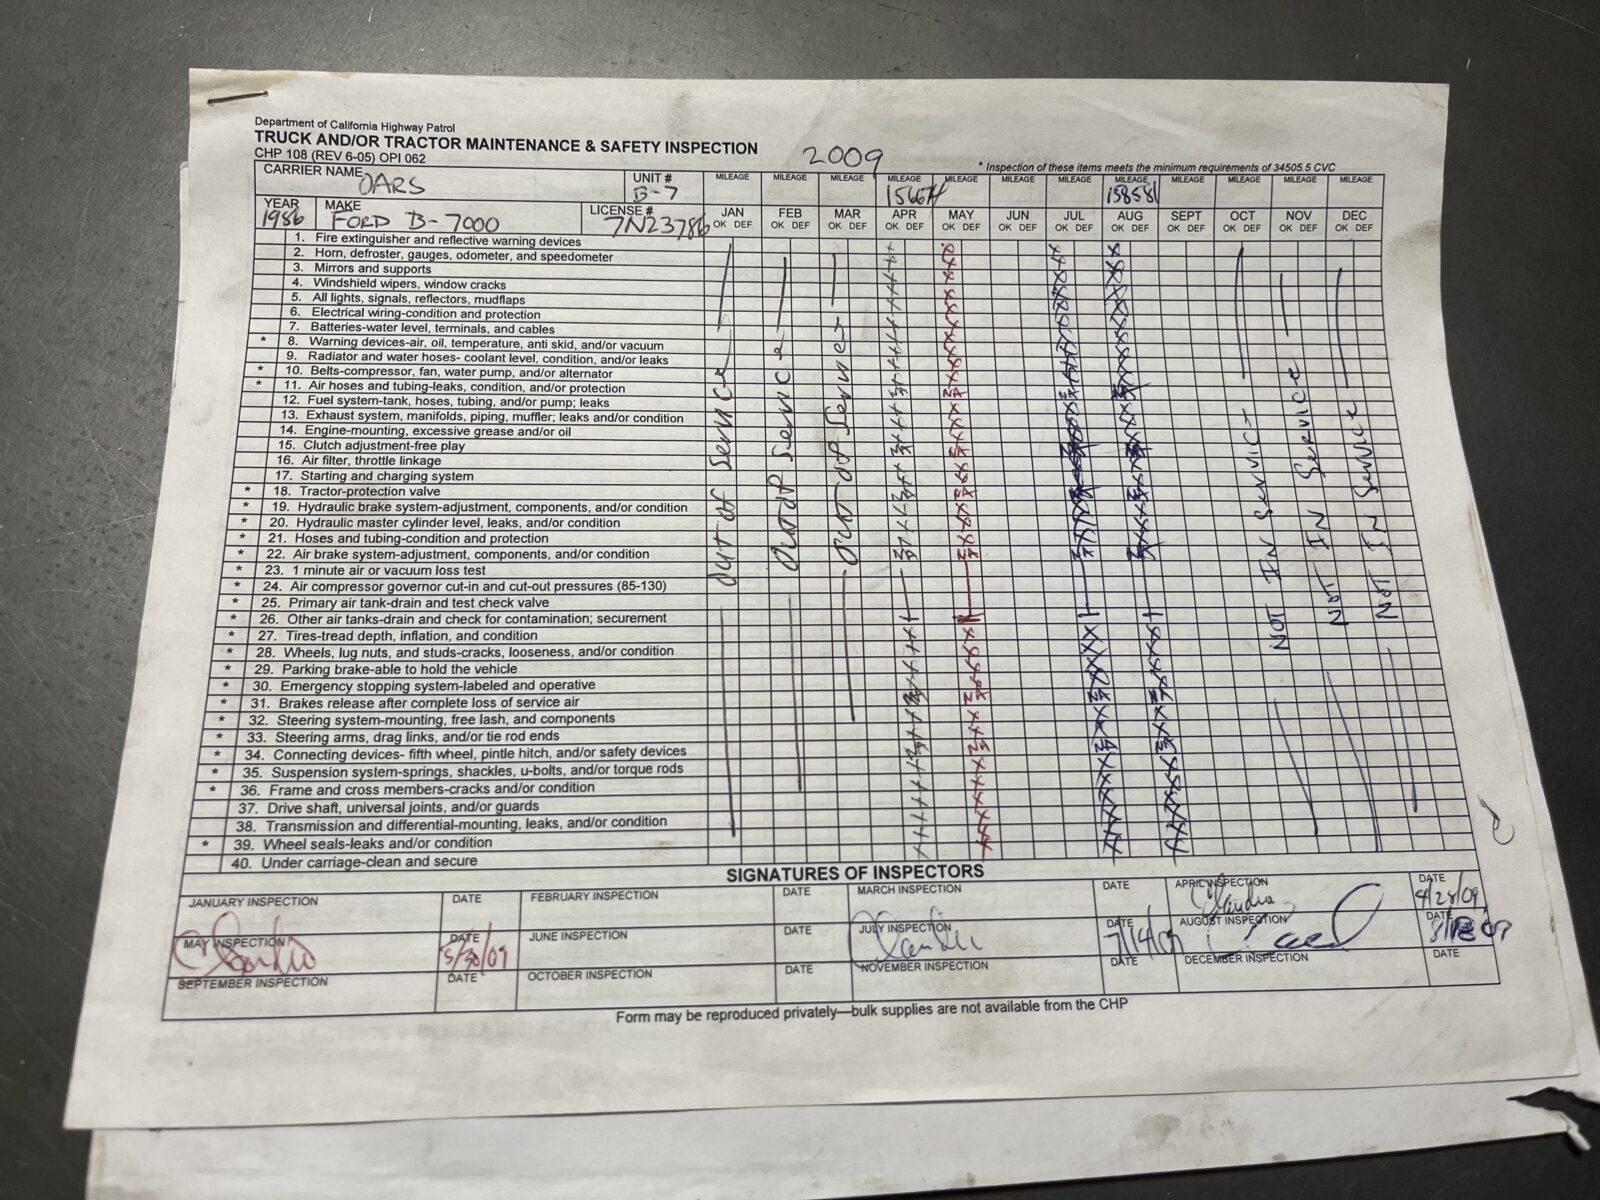 Department of California Highway Patrol
TRUCK AND/OR TRACTOR MAINTENANCE & SAFETY INSPECTION
CHP 108 (REV 6-05) OPI 062
2009
* Inspection of these items meets the minimum requirements of 34505.5 CVC
CARRIER NAME OARS
UNIT # B-7
MILEAGE MILEAGE MILEAGE MILEAGE MILEAGE MILEAGE MILEAGE MILEAGE MILEAGE MILEAGE MILEAGE MILEAGE
158581
YEAR 1986 MAKE FORD B-7000 LICENSE # 7N23786
JAN FEB MAR APR MAY JUN JUL AUG SEPT OCT NOV DEC
OK DEF OK DEF OK DEF OK DEF OK DEF OK DEF OK DEF OK DEF OK DEF OK DEF OK DEF OK DEF
1. Fire extinguisher and reflective warning devices
2. Horn, defroster, gauges, odometer, and speedometer
3. Mirrors and supports
4. Windshield wipers, window cracks
5. All lights, signals, reflectors, mudflaps
6. Electrical wiring-condition and protection
7. Batteries-water level, terminals, and cables
* 8. Warning devices-air, oil, temperature, anti skid, and/or vacuum
9. Radiator and water hoses- coolant level, condition, and/or leaks
* 10. Belts-compressor, fan, water pump, and/or alternator
* 11. Air hoses and tubing-leaks, condition, and/or protection
12. Fuel system-tank, hoses, tubing, and/or pump; leaks
13. Exhaust system, manifolds, piping, muffler; leaks and/or condition
14. Engine-mounting, excessive grease and/or oil
15. Clutch adjustment-free play
16. Air filter, throttle linkage
17. Starting and charging system
* 18. Tractor-protection valve
* 19. Hydraulic brake system-adjustment, components, and/or condition
* 20. Hydraulic master cylinder level, leaks, and/or condition
* 21. Hoses and tubing-condition and protection
* 22. Air brake system-adjustment, components, and/or condition
* 23. 1 minute air or vacuum loss test
* 24. Air compressor governor cut-in and cut-out pressures (85-130)
* 25. Primary air tank-drain and test check valve
* 26. Other air tanks-drain and check for contamination; securement
* 27. Tires-tread depth, inflation, and condition
* 28. Wheels, lug nuts, and studs-cracks, looseness, and/or condition
* 29. Parking brake-able to hold the vehicle
* 30. Emergency stopping system-labeled and operative
* 31. Brakes release after complete loss of service air
* 32. Steering system-mounting, free lash, and components
* 33. Steering arms, drag links, and/or tie rod ends
* 34. Connecting devices- fifth wheel, pintle hitch, and/or safety devices
* 35. Suspension system-springs, shackles, u-bolts, and/or torque rods
* 36. Frame and cross members-cracks and/or condition
37. Drive shaft, universal joints, and/or guards
38. Transmission and differential-mounting, leaks, and/or condition
* 39. Wheel seals-leaks and/or condition
40. Under carriage-clean and secure
out of service
out of service
out of service
NOT IN Service
NOT IN Service
NOT IN Service
SIGNATURES OF INSPECTORS
JANUARY INSPECTION DATE FEBRUARY INSPECTION DATE MARCH INSPECTION DATE APRIL INSPECTION DATE 4/28/09
MAY INSPECTION DATE 5/30/09 JUNE INSPECTION DATE JULY INSPECTION DATE 7/14/09 AUGUST INSPECTION DATE
SEPTEMBER INSPECTION DATE OCTOBER INSPECTION DATE NOVEMBER INSPECTION DATE DECEMBER INSPECTION DATE
Form may be reproduced privately—bulk supplies are not available from the CHP